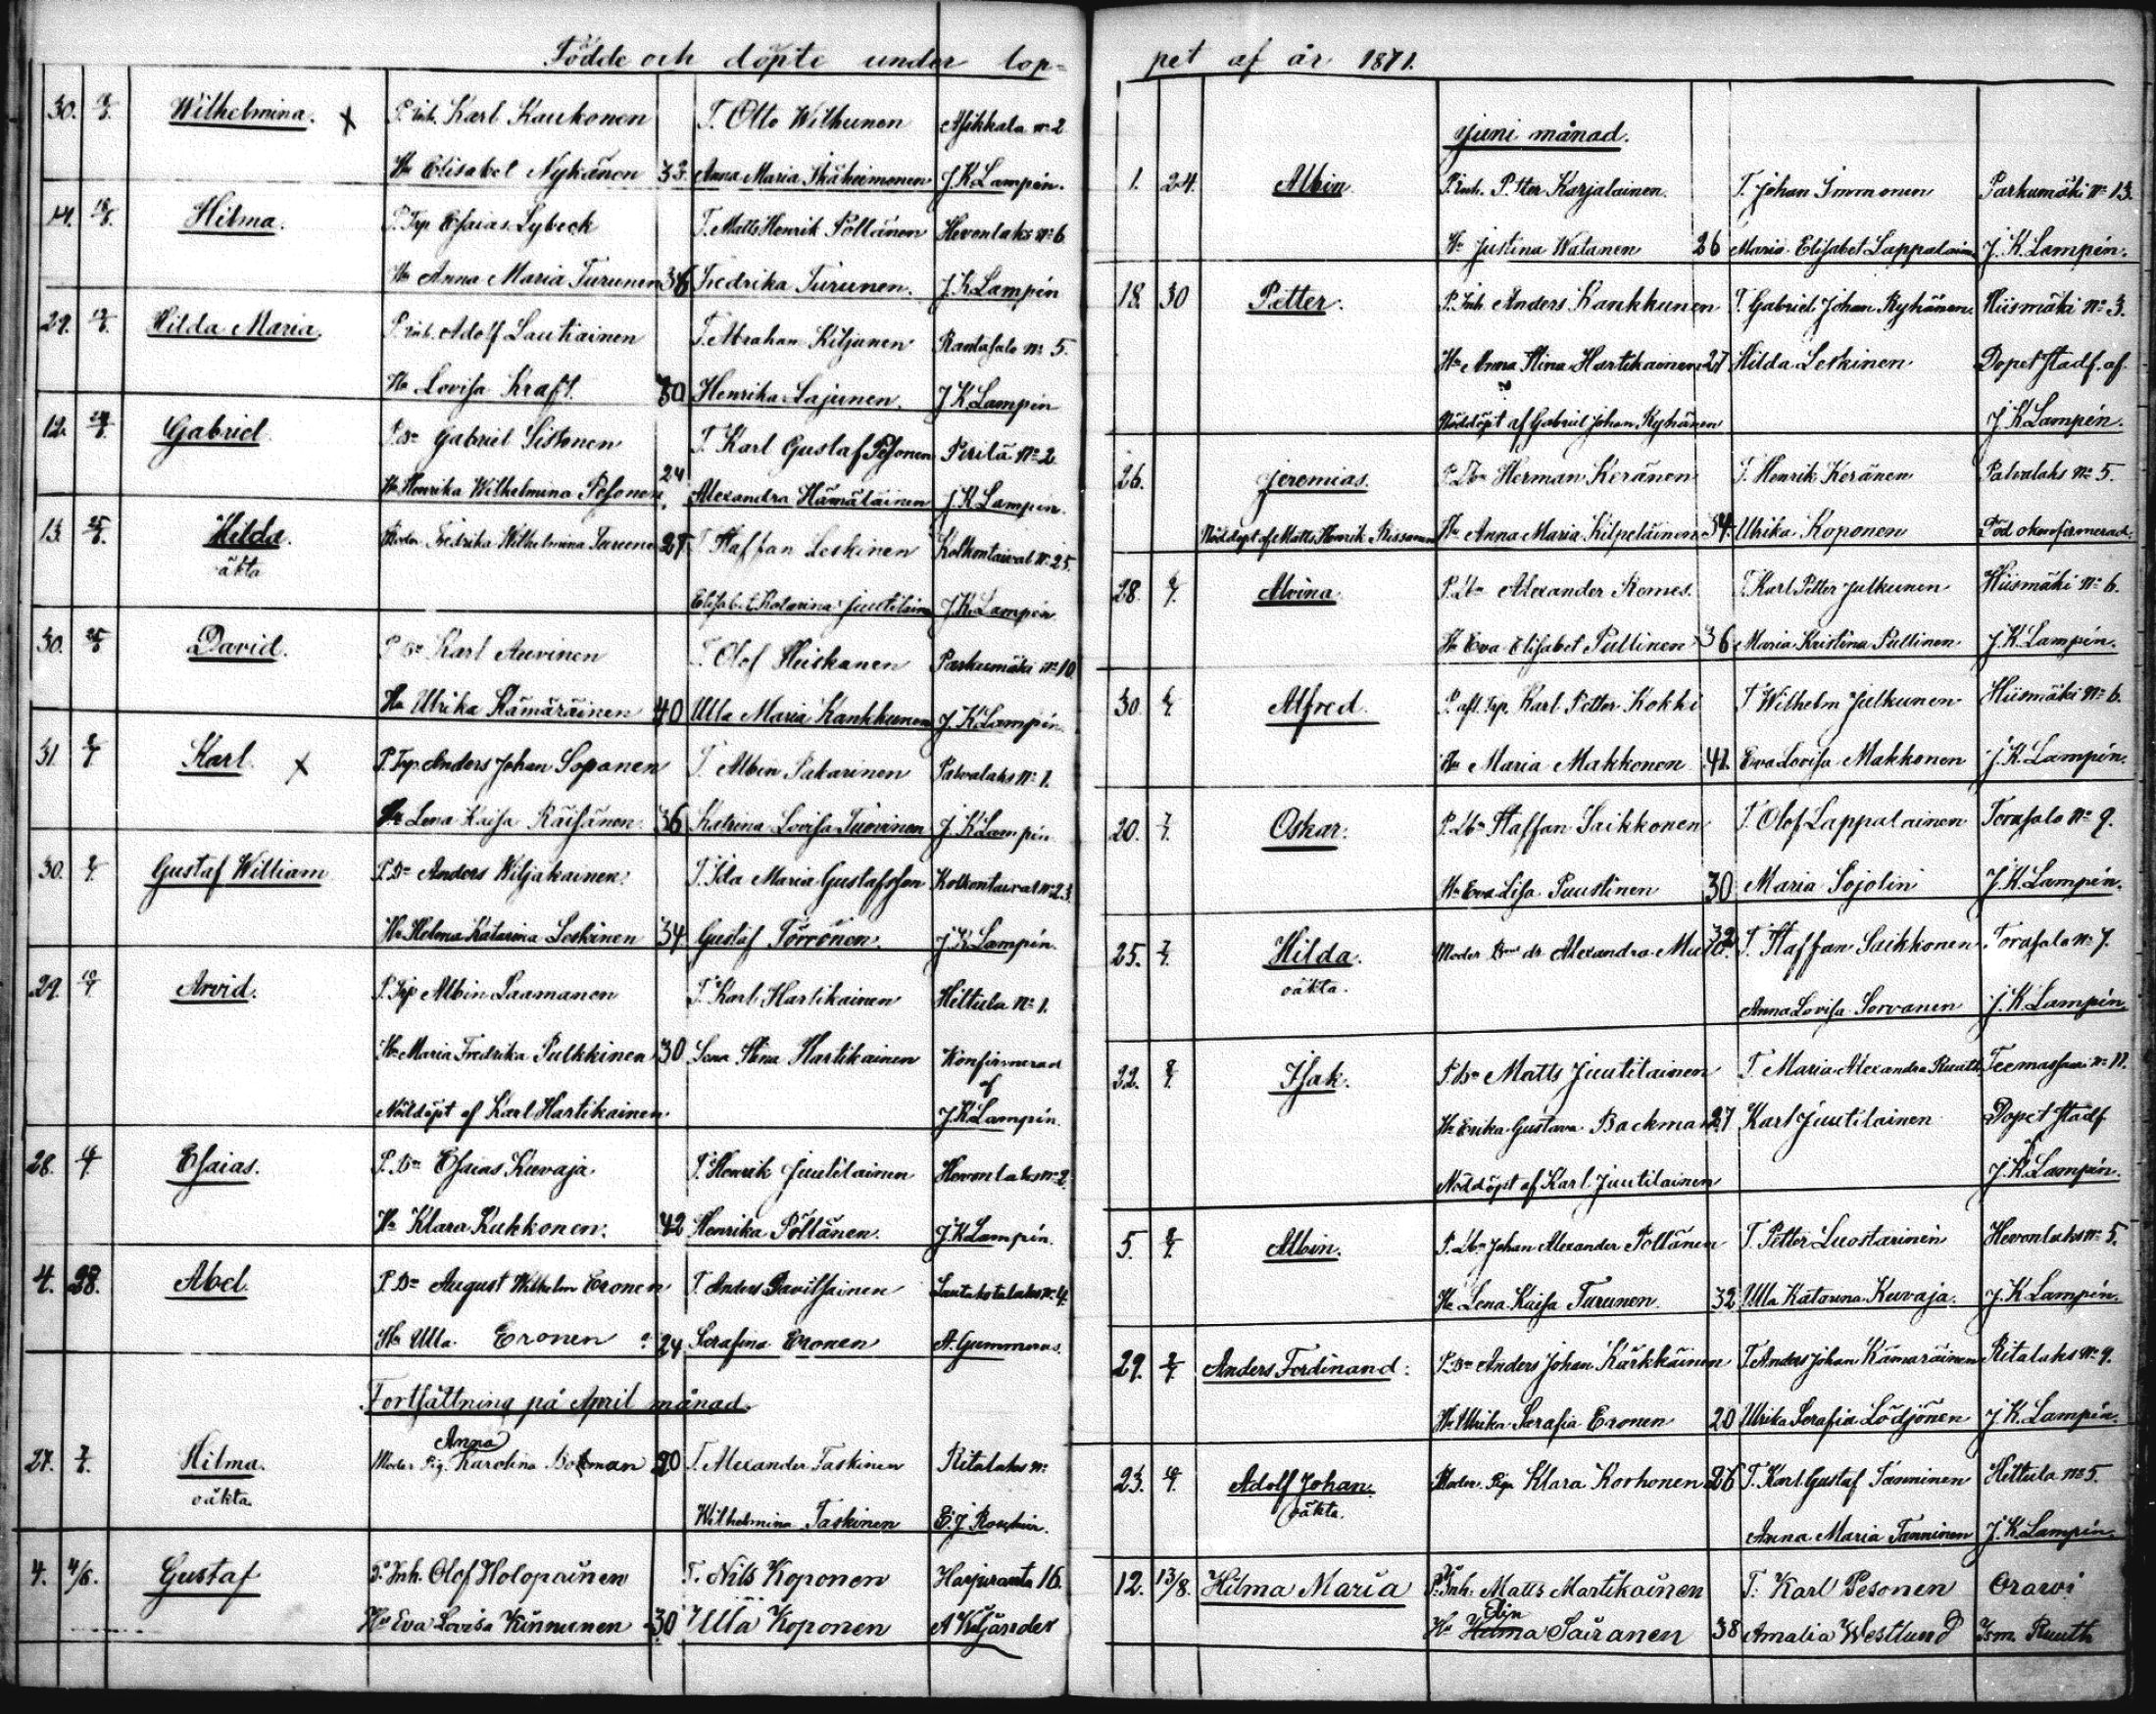 Födde och döpte under lop-
30. Wilhelmina. x P. inh. Karl Kaukonen T. Otto Wilhunen Asikkala no 2
Hu Elisabet Nykänen 33. Anna Maria J.K.Lampén.
14. Hilma. P. Trp. Esaias Lybeck T. Matts Henrik Pöllänen Hevonlaks no 6
Hu Anna Maria Turunen 36 Fredrika Turunen. J.K.Lampén
29. Hilda Maria. P. inh. Adolf Lautiainen T. Abraham Kiljunen Rantasalo no 5.
Hu Lovisa Kraft. 30 Henrika Lajunen. J.K.Lampén
12. Gabriel P. Bn Gabriel Sistonen T. Karl Gustaf Pesonen Pirilä No 2
Hu Henrika Wilhelmina Pesonen 24 Alexandra Hämäläinen J.K.Lampén.
13. Hilda. Moder Fredrika Wilhelmina Turunen 27 T. Staffan Leskinen Kolkontaival No 25.
oäkta
Elisabet Katarina Juutilainen J.K.Lampén
30. David. P. Bn Karl Auvinen T. Olof Heiskanen Parkumäki no 10
Hu Ulrika Kämäräinen 40 Ulla Maria Kankkunen J.K.Lampén.
31. Karl. x P. Trp. Anders Johan Sopanen T. Albin Pakarinen Palvalaks No 1.
Hu Lena Kaisa Räisänen. 36 Katrina Lovisa Tuovinen J.K.Lampén
30. Gustaf William P. Bn Anders Wiljakainen. T. Ida Maria Gustafsson Kolkontaival no 23.
Hu Helena Katarina Leskinen 34 Gustaf Törrönen. J.K.Lampén.
29. Arvid. P. Trp Albin Laamanen T. Karl Hartikainen Hiltula No 1.
Hu Maria Fredrika Pulkkinen 30 Lena Stina Hartikainen Konfirmerad
af
Nöddöpt af Karl Hartikainen J.K.Lampén.
28. Esaias. P. Bn Esaias Kuvaja. T. Henrik Juutilainen Hevonlaks no 2.
Hu Klara Kukkonen. 42 Henrika Pöllänen. J.K.Lampén.
4. 28. Abel. P. Bn August Wilhelm Eronen T. Anders Paviljainen no 4.
Hu Ulla Eronen 24 Serafina Eronen A. Gummerus.
Fortsättning på April månad.
Anna
27. Hilma. Moder Pig. Karolina 20 T. Alexander Taskinen Ritalaks no
oäkta.
Wilhelmina Taskinen E.J. Roschier.
4. 4/6. Gustaf P. Inh. Olof Holopainen T. Nils Koponen Harjuranta 16.
Hu Eva Lovisa Kinnunen 30 Ulla Koponen A Kiljander
pet af år 1871.
Juni månad.
1. 24. Albin P. inh. Petter Karjalainen. T. Johan Immonen Parkumäki No 13.
Hu Justina Watanen 26 Maria Elisabet Lappalainen J.K.Lampén.
18. 30 Petter. P. Inh. Anders Kankkunen T. Gabriel Johan Ryhänen. Hiismäki No 3.
Hu Anna Stina Hartikainen 27 Hilda Leskinen Dopet stadf. af
Nöddöpt af Gabriel Johan Ryhänen J.K.Lampén.
26. Jeremias. P. Lbn Herman Keränen T. Henrik Keränen Palvalaks No 5.
Nöddöpt af Matts Henrik Nissanen Hu Anna Maria Kilpeläinen 34. Ulrika Koponen Död okonfirmerad.
28. Alvina. P. Lbn Alexander Romes. T. Karl Petter Julkunen Hiismäki No 6.
Hu Eva Elisabet Pullinen 36 Maria Kristina Pullinen J.K.Lampén.
30. Alfred. P. afl. Trp. Karl Petter Kokki T Wilhelm Julkunen Hiismäki No 6.
Hu Maria Makkonen 41. Eva Lovisa Makkonen J.K.Lampén.
20. Oskar. P. Lbn Staffan Saikkonen T. Olof Lappalainen Torasalo No 9.
Hu Eva Lisa Puustinen 30 Maria Sojolin J.K.Lampén.
25. Hilda. Moder dr Alexandra 32 T. Staffan Saikkonen Torasalo no 7.
oäkta. Anna Lovisa Sorvanen J.K.Lampén
22. Isak. P. Bn Matts Juutilainen T Maria Alexandra Ruuth. no 11.
Hu Erika Gustava Backman 27 Karl Juutilainen Dopet stadf
Nöddöpt af Karl Juutilainen J.K.Lampén.
5. Albin. P. Lbn Johan Alexander Pöllänen T. Petter Luostarinen Hevonlaks No 5.
Hu Lena Kaisa Turunen. 32 Ulla Katarina Kuvaja. J.K.Lampén.
29. Anders Ferdinand. P. Bn Anders Johan Kärkkäinen T. Anders Johan Kämäräinen Ritalaks No 9.
Hu Ulrika Serafia Eronen 20 Ulrika Serafia Lödjönen J.K.Lampén.
23. Adolf Johan. Moder. Pig. Klara Korhonen 26 T. Karl Gustaf Tanninen Hiltula No 5.
oäkta. Anna Maria Tanninen J.K.Lampén.
12. 13/8. Hilma Maria P. Inh. Matts Martikainen T. Karl Pesonen Orawi
Elin
Hu Helena Säiranen 38 Amalia Westlund Ism. Ruuth